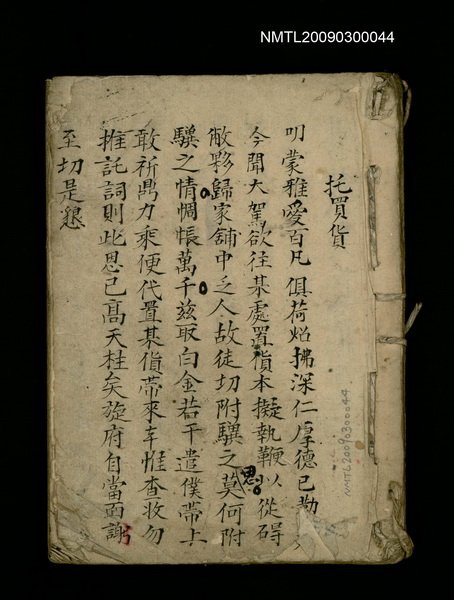 NMTL20090300044
托買貨
叨蒙雅愛百凡俱荷炤拂深仁厚德已勒
今聞大駕欲往某處置貨本擬執鞭以從碍
敝夥歸家舖中乏人故徒切附驥之莫何附
思
驥之情惆悵萬千茲取白金若干遣僕帶上
敢祈鼎力乘便代置某貨帶來幸惟查收勿
推託詞則此恩已高天柱矣旋府自當面謝
至切是懇
NMTL20090300044